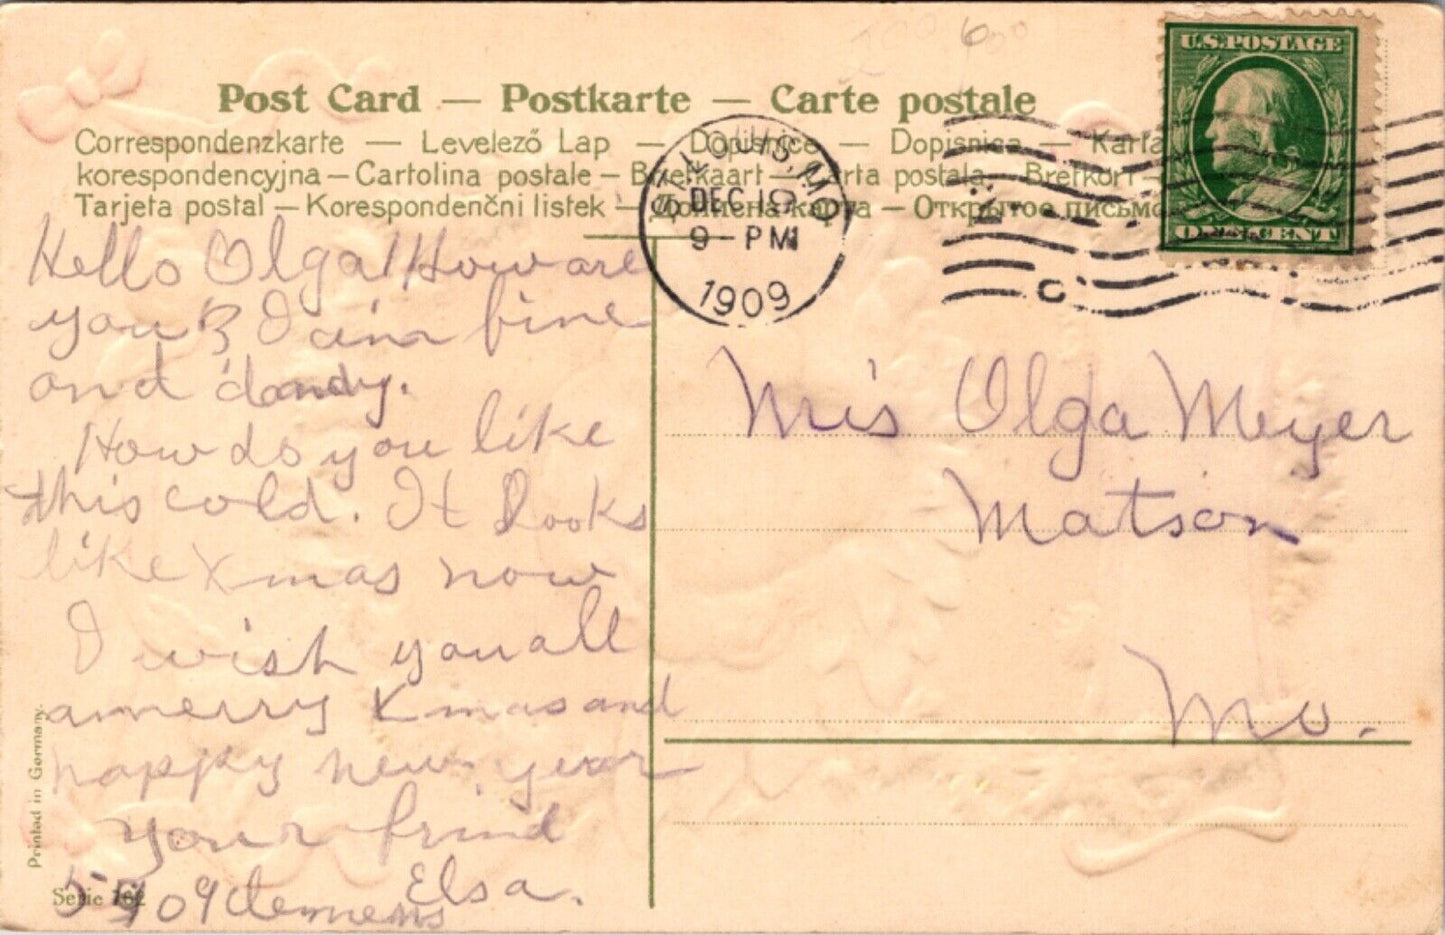 Post Card — Postkarte — Carte postale
Correspondenzkarte — Levelező Lap — Dopisnice — Dopisnica — Karta
korespondencyjna — Cartolina postale — Briefkaart — Carta postala — Brefkort —
Tarjeta postal — Korespondenčni listek — Дописна карта — Открытое письмо
U.S. POSTAGE
ONE CENT
ST. LOUIS, MO.
DEC 19
9 - PM
1909
Hello Olga! How are
you? I am fine
and dandy.
How do you like
this cold. It looks
like Xmas now
I wish you all
a merry Xmas and
happy new year
your frind
Elsa.
Clemens
Mis Olga Meyer
Matson
Mo.
Printed in Germany.
Serie 762